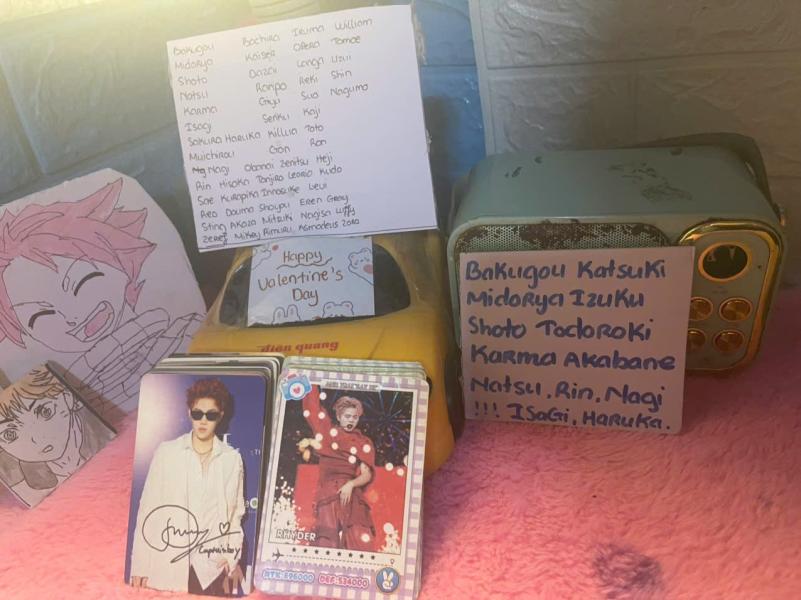 Bakugou Bachira Iruma William
Midorya Kaiser Opera Tomoe
Shoto Dazai Langa Uzui
Natsu Ranpo Reki Shin
Karma Giyu Suo Nagumo
Isagi Senku Kaji
Sakura Haruka Killua Toto
Muichirou Gon Ron
Nagi Obanai Zenitsu Heji
Rin Hisoka Tanjiro Leorio Kudo
Sae Kurapika Innosuke Levi
Reo Douma Shouyou Eren Greay
Sting Akaza Mitsuki Nagisa Luffy
Zeref Mikey Rimuru, Asmodeus Zoro
Happy
Valentine's
Day
điện quang
Bakugou Katsuki
Midorya Izuku
Shoto Todoroki
Karma Akabane
Natsu, Rin, Nagi
!!! ISaGi, HaRuKa.
Captainboy
RHYDER
ATK:696000 DEF:534000